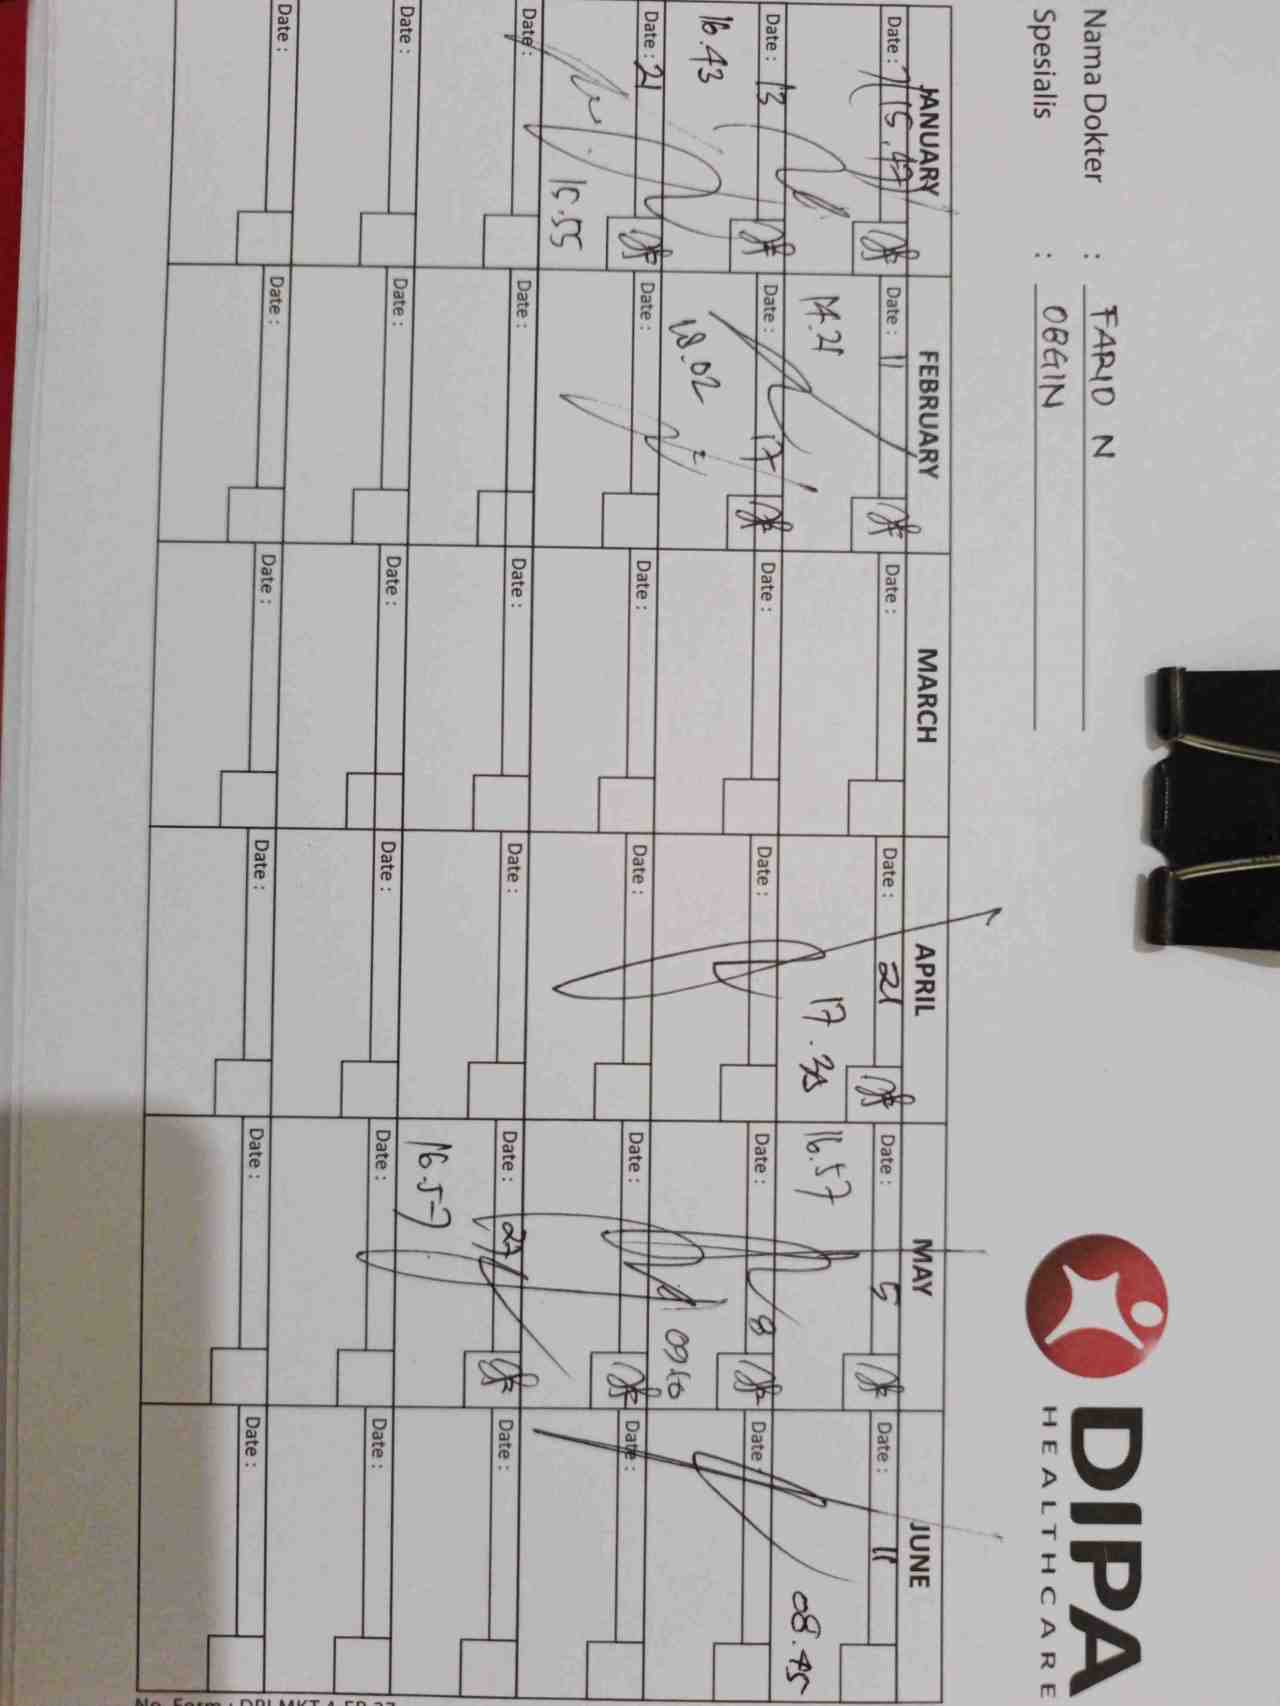 DIPA
HEALTHCARE
Nama Dokter : FARID N
Spesialis : OBGIN
JANUARY FEBRUARY MARCH APRIL MAY JUNE
Date : 7 Date : 11 Date : Date : 21 Date : 5 Date : 11
15.47 14.21 17.35 16.57 08.45
Date : 13 Date : 17 Date : Date : Date : 8 Date :
16.43 18.02 09.10
Date : 21 Date : Date : Date : Date : Date :
15.55
Date : Date : Date : Date : Date : 27 Date :
16.57
Date : Date : Date : Date : Date : Date :
Date : Date : Date : Date : Date : Date :